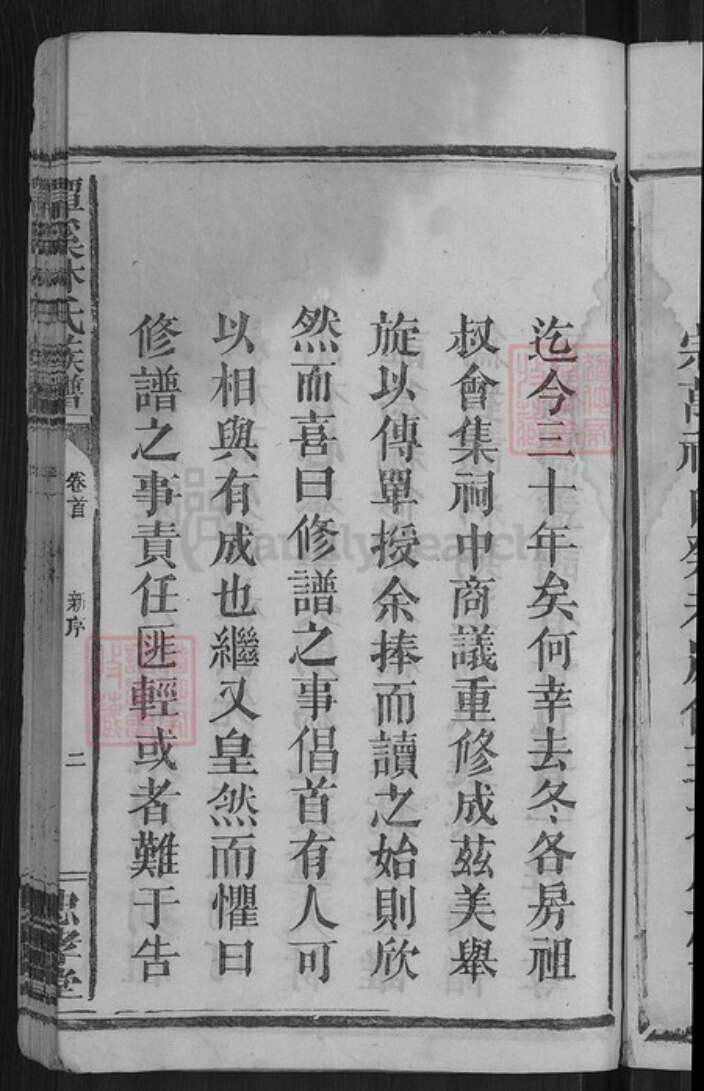 迄今三十年矣何幸去冬各房祖
叔會集祠中商議重修成茲美舉
旋以傳單授余捧而讀之始則欣
然而喜曰修譜之事倡首有人可
以相與有成也繼又皇然而懼曰
修譜之事責任匪輕或者難于告
林氏族譜
卷首
新序
二
忠孝堂